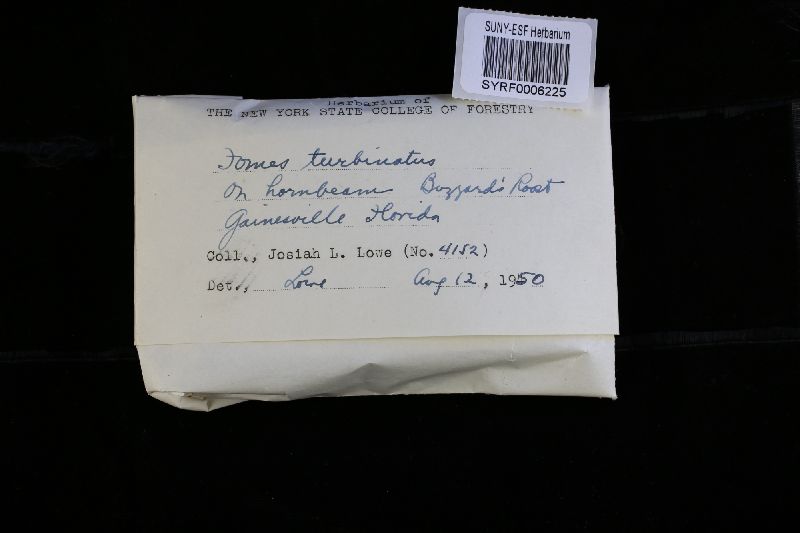 SUNY-ESF Herbarium
SYRF0006225
Herbarium of
THE NEW YORK STATE COLLEGE OF FORESTRY
Fomes turbinatus
On hornbeam Buzzard's Roost
Gainesville Florida
Coll., Josiah L. Lowe (No. 4152)
Det., Lowe Aug 12, 1950